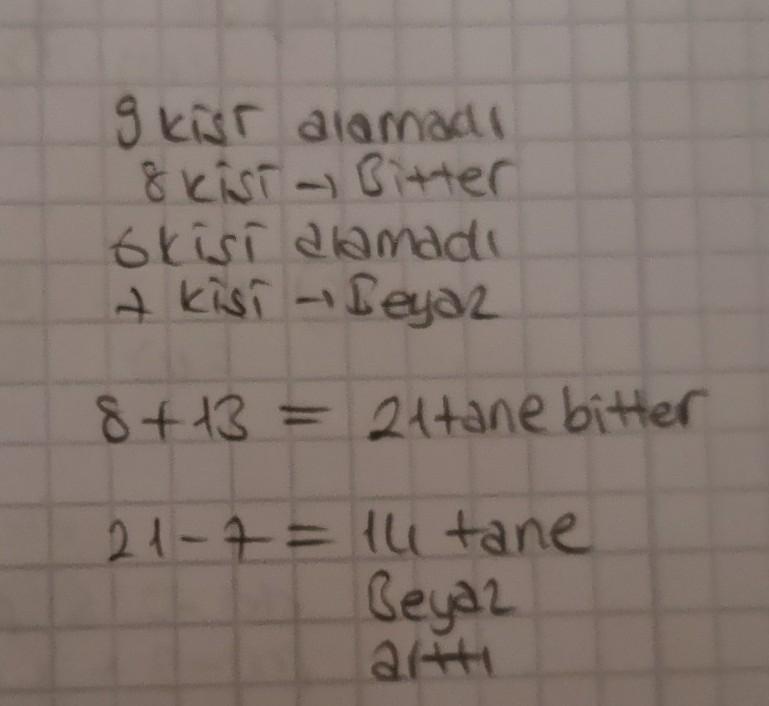 9 kişi alamadı
8 kişi → Bitter
6 kişi alamadı
7 kişi → Beyaz
8 + 13 = 21 tane bitter
21 - 7 = 14 tane
Beyaz
arttı